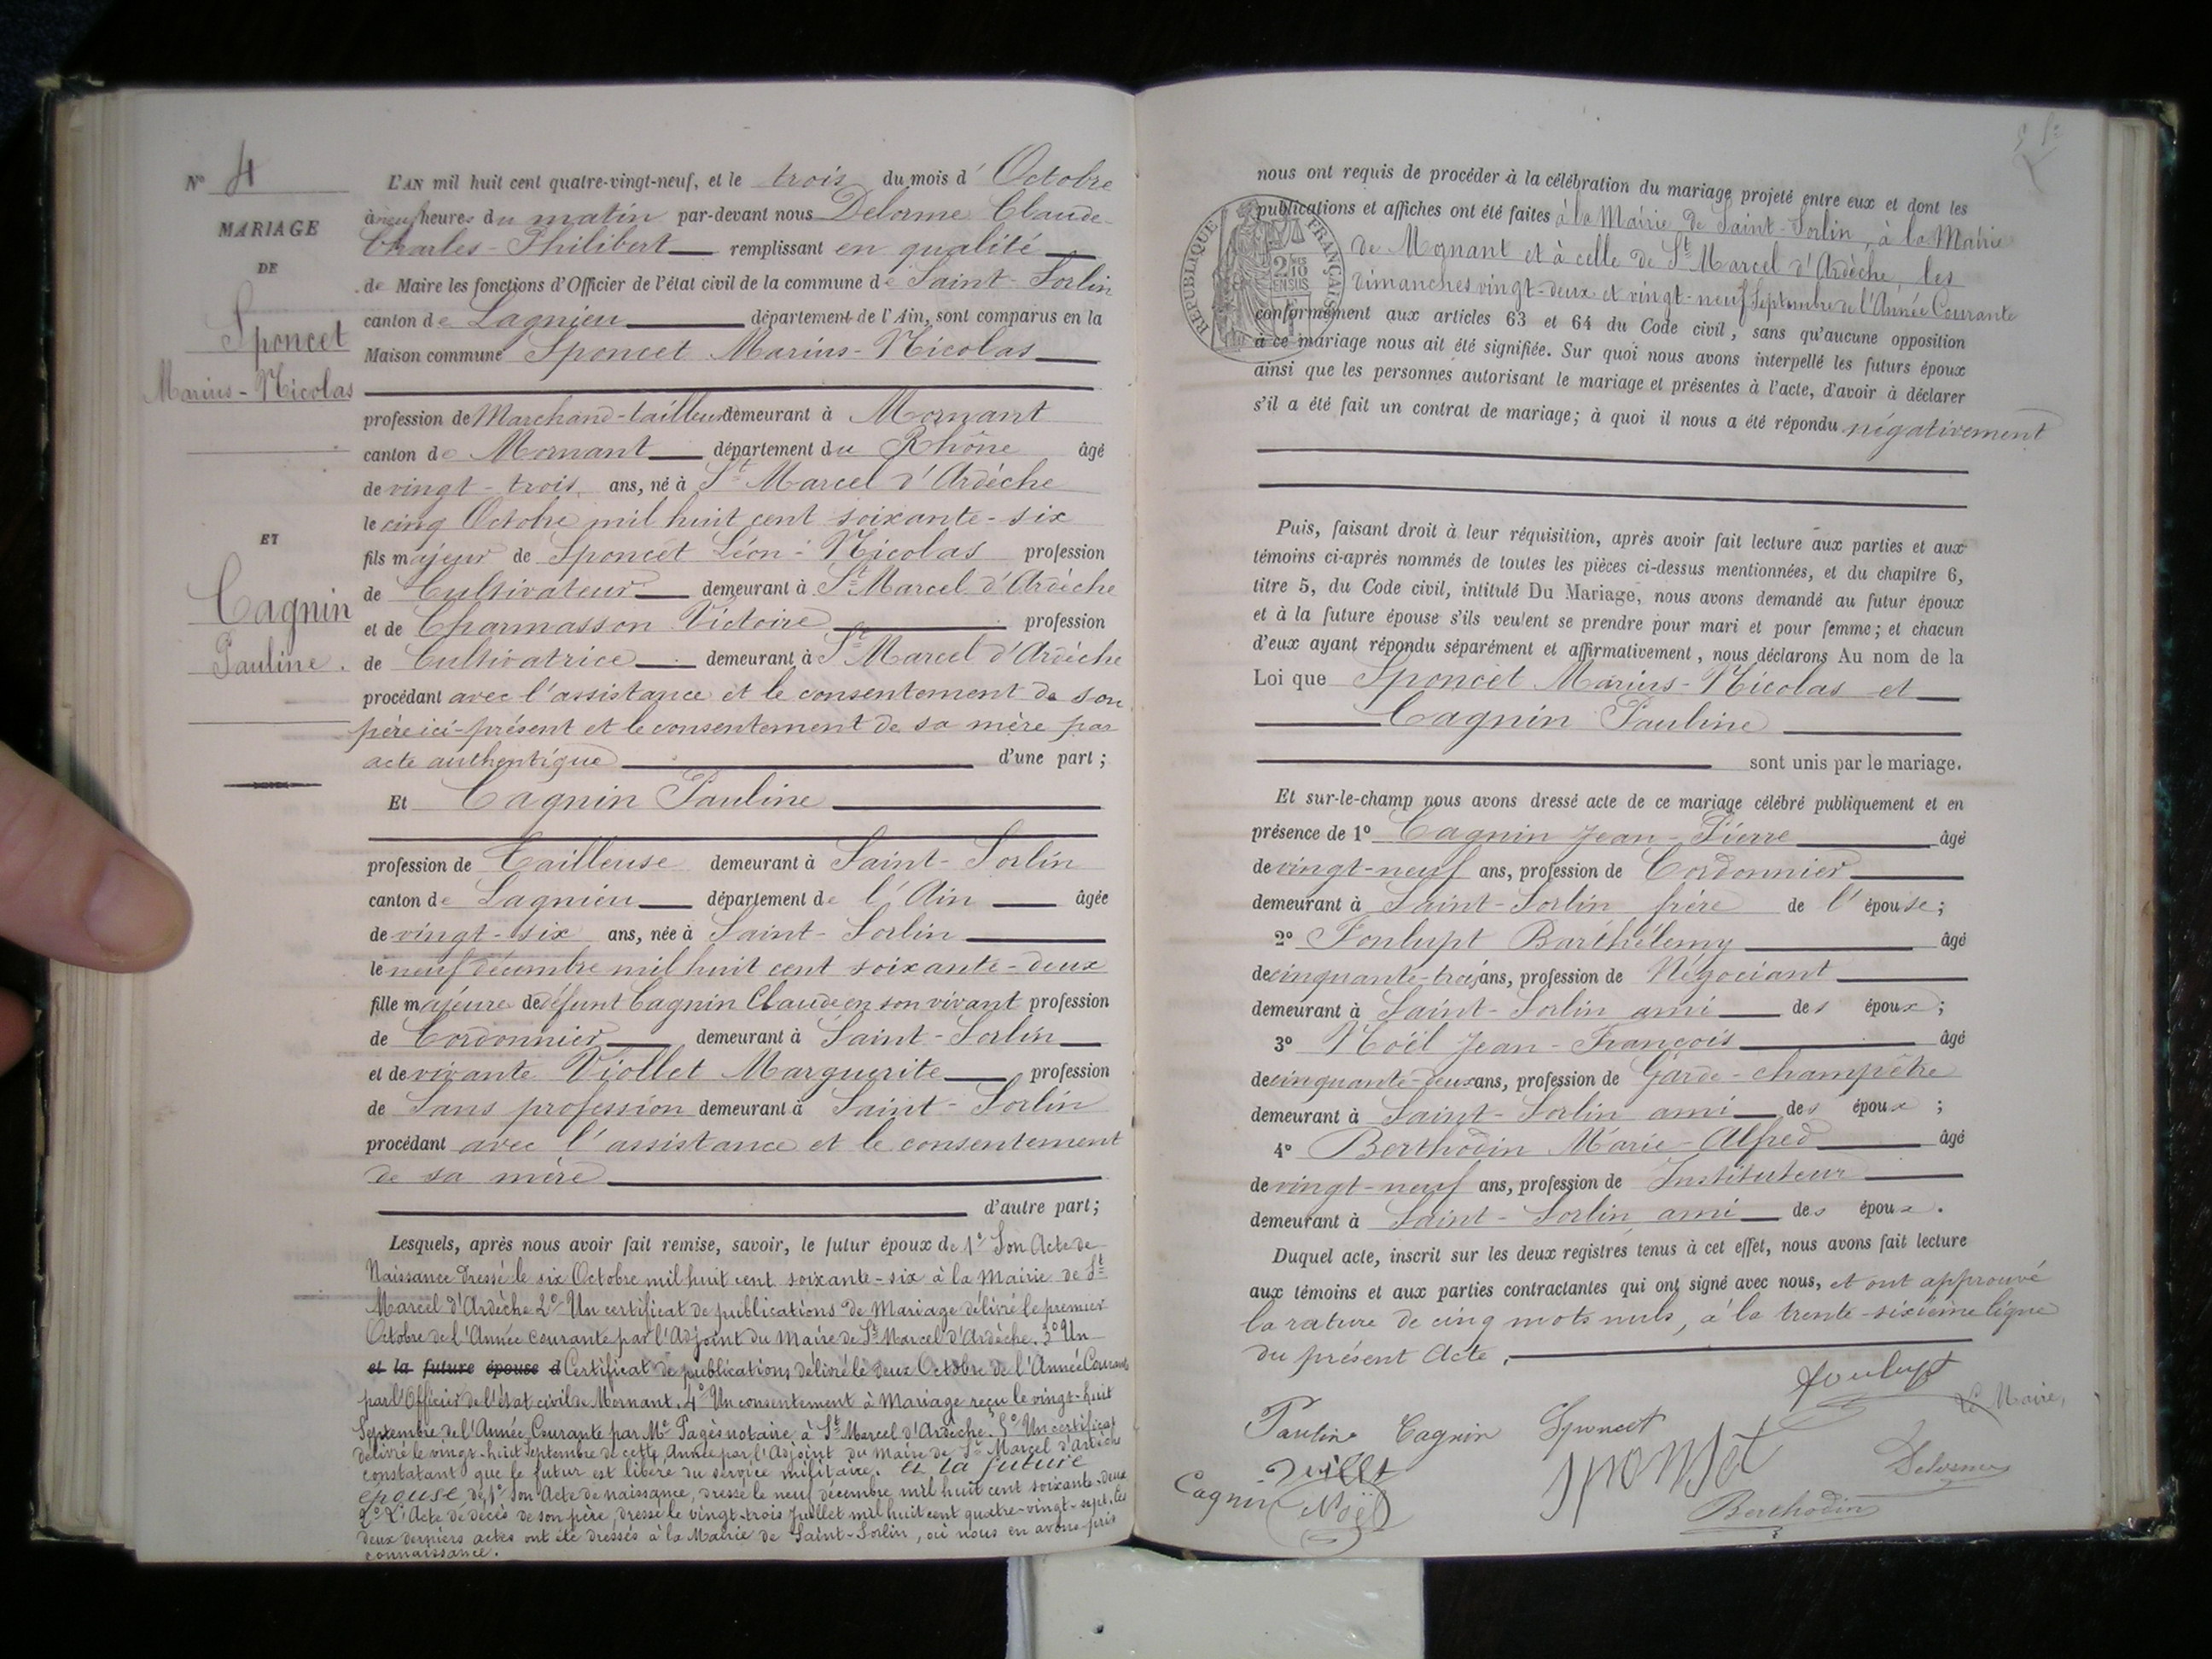 N° 4
MARIAGE
DE
Sponcet
Marius-Nicolas
ET
Cagnin
Pauline.
L'AN mil huit cent quatre-vingt-neuf, et le trois du mois d'Octobre
à neuf heures du matin par-devant nous Delorme Claude-
Charles-Philibert remplissant en qualité
de Maire les fonctions d'Officier de l'état civil de la commune de Saint-Sorlin
canton de Lagnieu département de l'Ain, sont comparus en la
Maison commune Sponcet Marius-Nicolas
profession de Marchand-tailleur demeurant à Mornant
canton de Mornant département du Rhône âgé
de vingt-trois ans, né à St Marcel d'Ardèche
le cinq Octobre mil huit cent soixante-six
fils majeur de Sponcet Léon-Nicolas profession
de Cultivateur demeurant à St Marcel d'Ardèche
et de Charmasson Victoire profession
de Cultivatrice demeurant à St Marcel d'Ardèche
procédant avec l'assistance et le consentement de son
père ici-présent et le consentement de sa mère par
acte authentique d'une part ;
Et Cagnin Pauline
profession de Tailleuse demeurant à Saint-Sorlin
canton de Lagnieu département de l'Ain âgée
de vingt-six ans, née à Saint-Sorlin
le neuf décembre mil huit cent soixante-deux
fille majeure de défunt Cagnin Claude en son vivant profession
de Cordonnier demeurant à Saint-Sorlin
et de vivante Viollet Marguerite profession
de Sans profession demeurant à Saint-Sorlin
procédant avec l'assistance et le consentement
de sa mère
d'autre part ;
Lesquels, après nous avoir fait remise, savoir, le futur époux de 1° Son Acte de
Naissance dressé le six Octobre mil huit cent soixante-six à la Mairie de St
Marcel d'Ardèche 2° Un certificat de publications de Mariage délivré le premier
Octobre de l'Année courante par l'Adjoint du Maire de St Marcel d'Ardèche. 3° Un
et la future épouse d Certificat de publications délivré le deux Octobre de l'Année Courante
par l'Officier de l'état civil de Mornant. 4° Un consentement à Mariage reçu le vingt-huit
Septembre de l'Année Courante par Me Pagès notaire à St Marcel d'Ardèche. 5° Un certificat
délivré le vingt-huit Septembre de cette Année par l'Adjoint du Maire de St Marcel d'Ardèche
constatant que le futur est libéré du service militaire. et la future
épouse, de 1° Son Acte de naissance, dressé le neuf décembre mil huit cent soixante-deux
2° L'Acte de décès de son père, dressé le vingt-trois Juillet mil huit cent quatre-vingt-sept. Les
deux derniers actes ont été dressés à la Mairie de Saint-Sorlin, où nous en avons pris
connaissance.
REPUBLIQUE FRANÇAISE
2/10
EN SUS
nous ont requis de procéder à la célébration du mariage projeté entre eux et dont les
publications et affiches ont été faites à la Mairie de Saint-Sorlin, à la Mairie
de Mornant et à celle de St Marcel d'Ardèche, les
dimanches vingt-deux et vingt-neuf Septembre de l'Année Courante
conformément aux articles 63 et 64 du Code civil, sans qu'aucune opposition
à ce mariage nous ait été signifiée. Sur quoi nous avons interpellé les futurs époux
ainsi que les personnes autorisant le mariage et présentes à l'acte, d'avoir à déclarer
s'il a été fait un contrat de mariage; à quoi il nous a été répondu négativement
Puis, faisant droit à leur réquisition, après avoir fait lecture aux parties et aux
témoins ci-après nommés de toutes les pièces ci-dessus mentionnées, et du chapitre 6,
titre 5, du Code civil, intitulé Du Mariage, nous avons demandé au futur époux
et à la future épouse s'ils veulent se prendre pour mari et pour femme; et chacun
d'eux ayant répondu séparément et affirmativement, nous déclarons Au nom de la
Loi que Sponcet Marius-Nicolas et
Cagnin Pauline
sont unis par le mariage.
Et sur-le-champ nous avons dressé acte de ce mariage célébré publiquement et en
présence de 1° Cagnin Jean-Pierre âgé
de vingt-neuf ans, profession de Cordonnier
demeurant à Saint-Sorlin frère de l'épouse;
2° Fonlupt Barthélemy âgé
de cinquante-trois ans, profession de Négociant
demeurant à Saint-Sorlin ami des époux;
3° Noël Jean-François âgé
de cinquante-deux ans, profession de Garde-champêtre
demeurant à Saint-Sorlin ami des époux;
4° Berthodin Marie-Alfred âgé
de vingt-neuf ans, profession de Instituteur
demeurant à Saint-Sorlin ami des époux.
Duquel acte, inscrit sur les deux registres tenus à cet effet, nous avons fait lecture
aux témoins et aux parties contractantes qui ont signé avec nous, et ont approuvé
la rature de cinq mots nuls, à la trente-sixième ligne
du présent Acte.
Fonlupt
Le Maire,
Pauline Cagnin Sponcet
Sponset
Delorme
Cagnin Noël
Berthodin